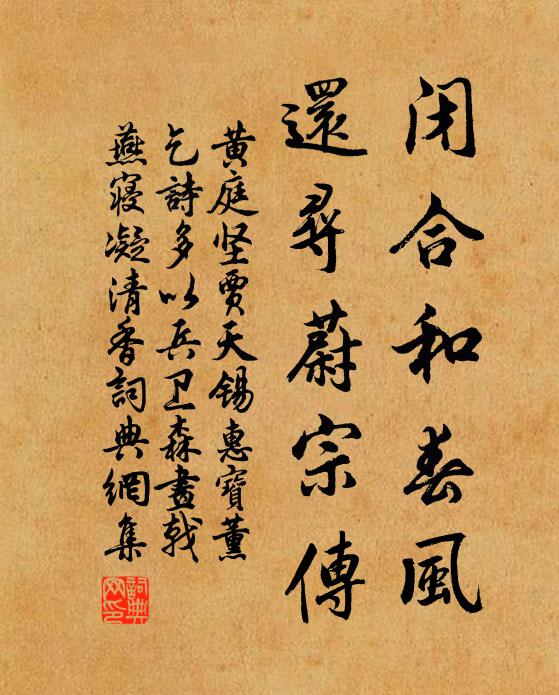 闭合和春風
還尋蔚宗傳
黄庭坚賈天錫惠寶薰
乞詩多以兵卫森畫戟
燕寢凝清香詞典網集
詞典
网印